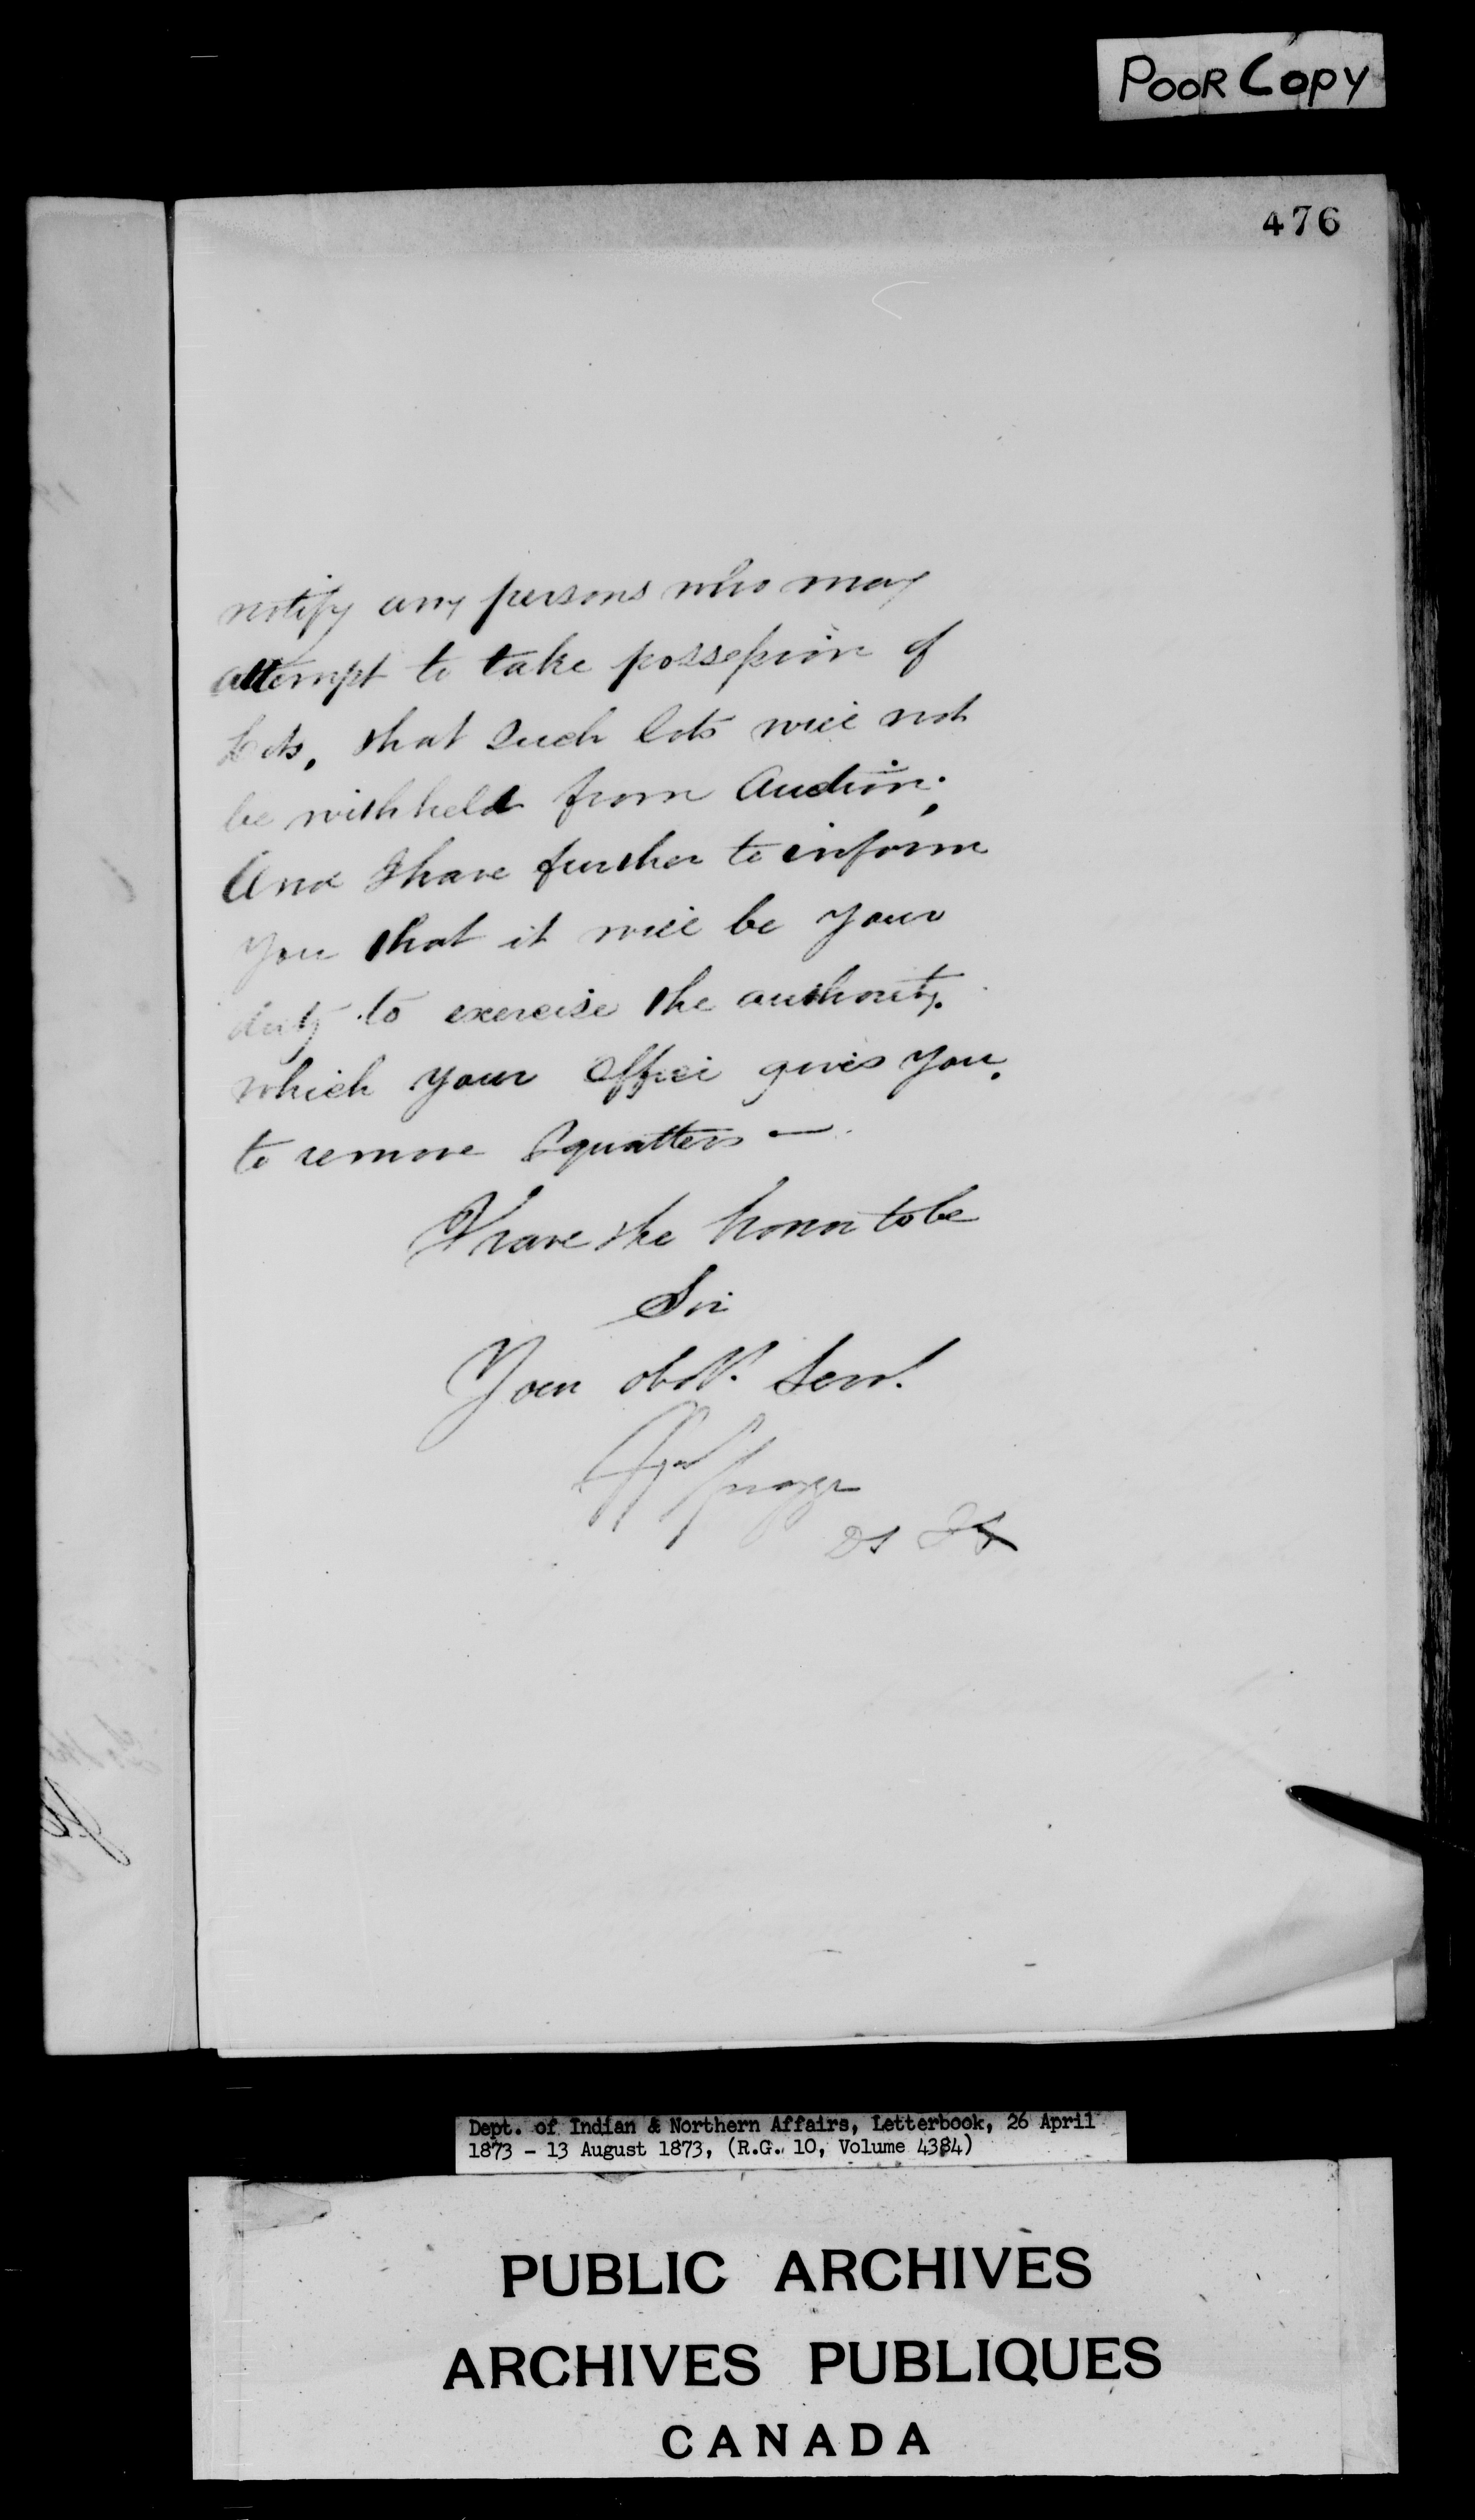 POOR COPY
476
notify any persons who may
attempt to take possession of
Lots, that such lots will not
be withheld from Auction;
And I have further to inform
you that it will be your
duty to exercise the authority
which your office gives you,
to remove Squatters —
I have the honor to be
Sir
Your obdt. Servt.
Wm Spragge
DS IA
Dept. of Indian & Northern Affairs, Letterbook, 26 April
1873 - 13 August 1873, (R.G. 10, Volume 4384)
PUBLIC ARCHIVES
ARCHIVES PUBLIQUES
CANADA